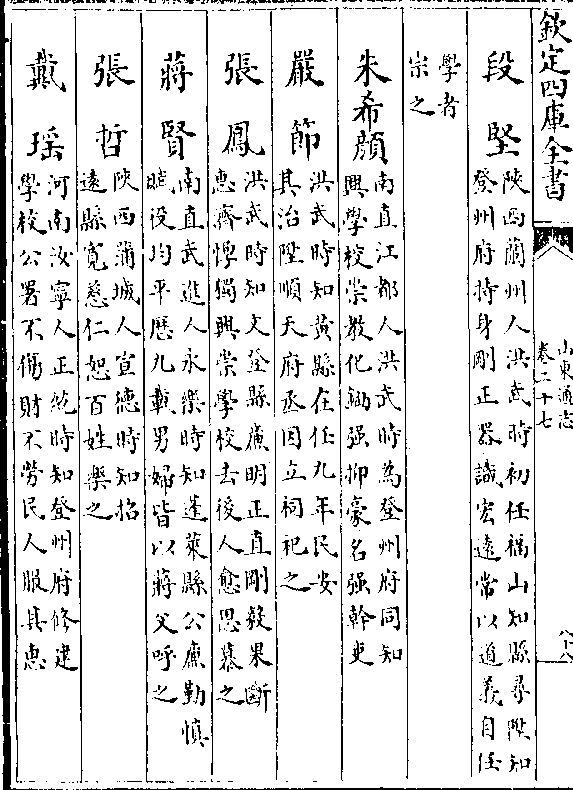 欽定四庫全書
山東通志
卷二十七
八十八
段堅
陜西蘭州人洪武時初任福山知縣尋陞知
登州府持身剛正器識宏遠常以道義自任
學者
宗之
朱希顔
南直江都人洪武時為登州府同知
興學校崇教化鋤强抑豪名强幹吏
嚴節
洪武時知黄縣在任九年民安
其治陞順天府丞因立祠祀之
張鳳
洪武時知文登縣廉明正直剛毅果斷
惠齊惸獨興崇學校去後人愈思慕之
蔣賢
南直武進人永樂時知蓬萊縣公廉勤慎
賦役均平歷九載男婦皆以蔣父呼之
張哲
陜西蒲城人宣德時知招
遠縣寛慈仁恕百姓樂之
戴瑶
河南汝寧人正統時知登州府修建
學校公署不傷財不勞民人服其惠